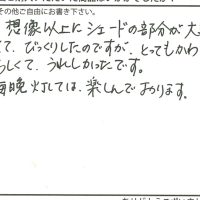 その他ご自由にお書き下さい。
想像以上にシェードの部分が大
て、びっくりしたのですが、とってもかわ
らしくて、うれしかったです。
毎晩灯しては、楽しんでおります。